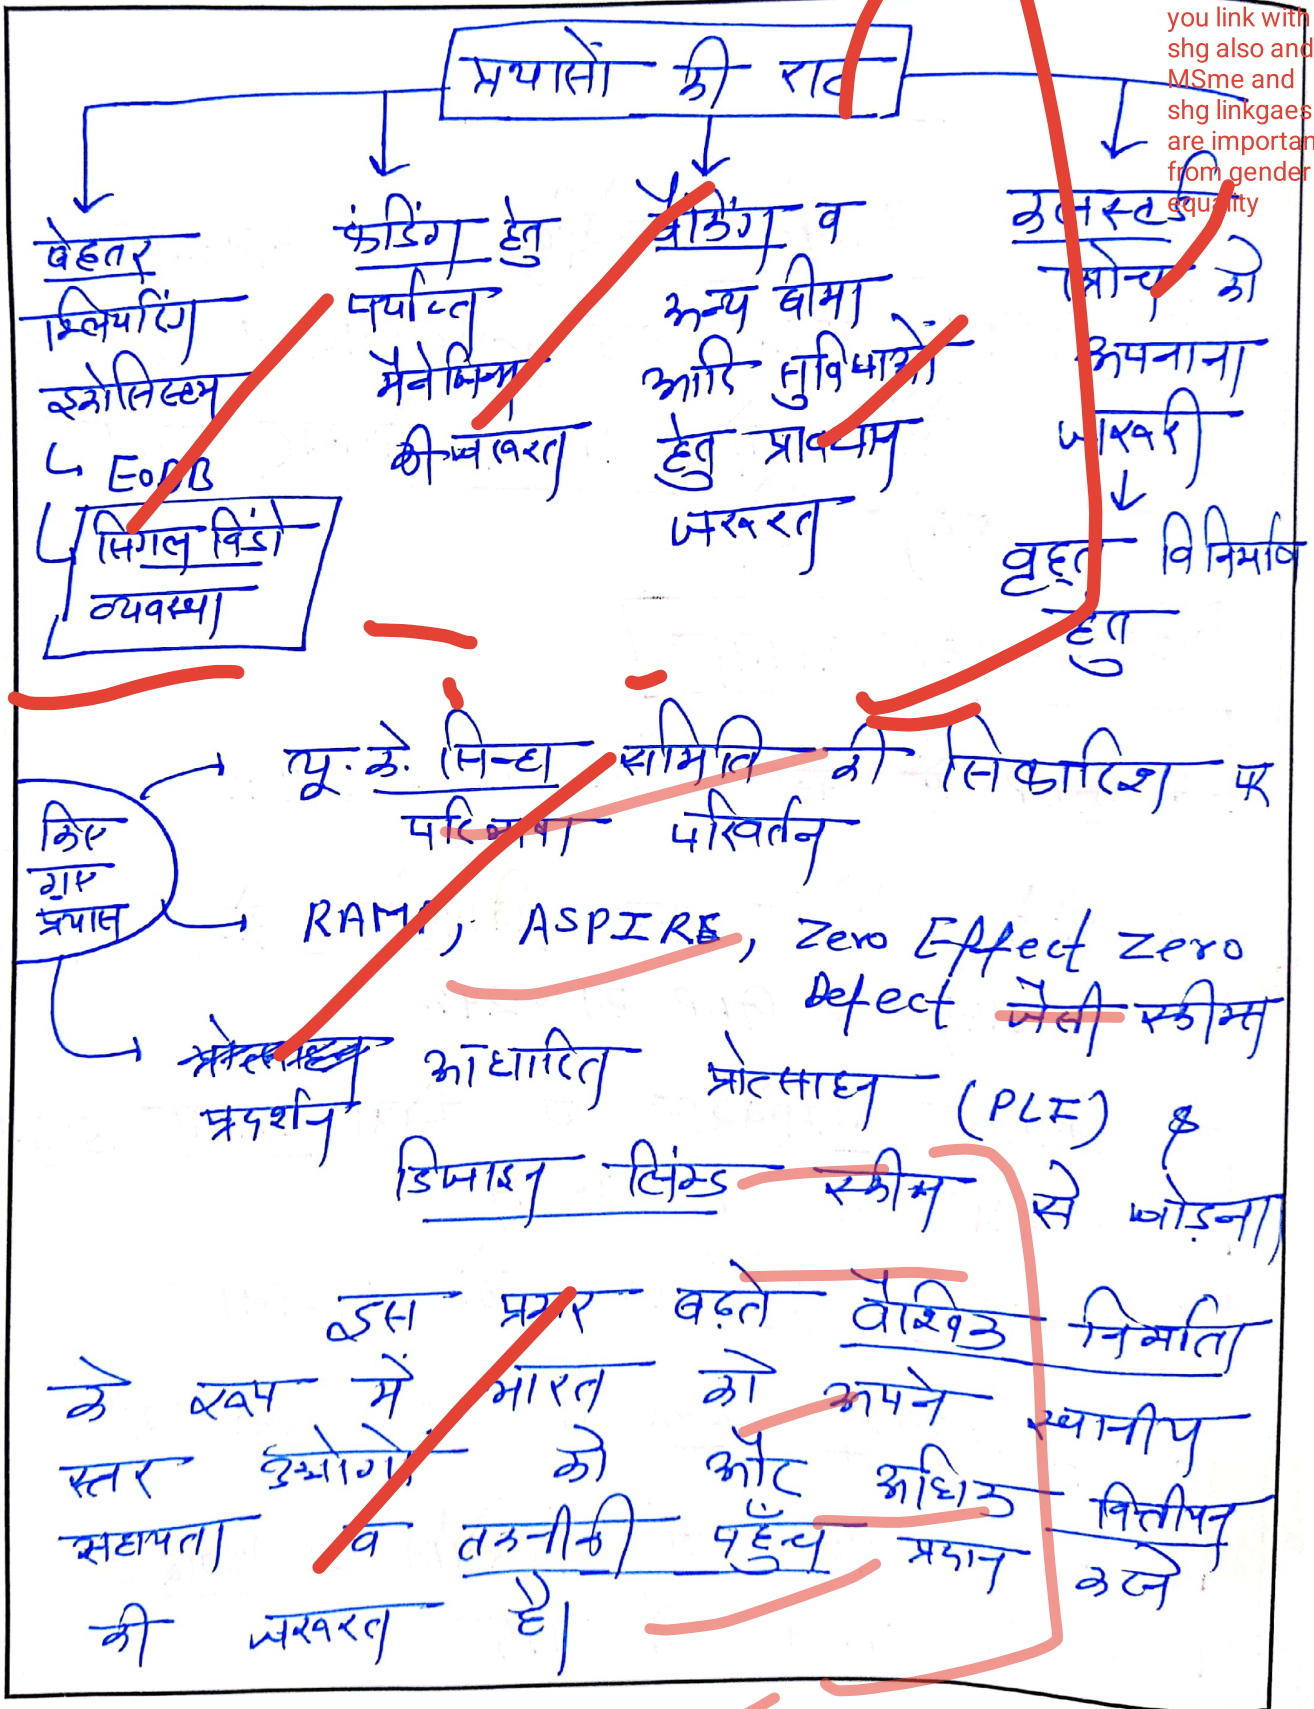 प्रयासों की राह
you link with
shg also and
MSme and
shg linkgaes
are importan
from gender
equality
बेहतर
क्लियरिंग
इकोसिस्टम
EoDB
सिंगल विंडो
व्यवस्था
फंडिंग हेतु
पर्याप्त
मैनेजिंग
की जरूरत
बैंकिंग व
अन्य बीमा
आदि सुविधाओं
हेतु प्रावधान
जरूरत
क्लस्टर्ड
एप्रोच को
अपनाना
जरूरी
वृहत विनिर्माण
हेतु
किए
गए
प्रयास
यू. के. सिन्हा समिति की सिफारिश पर
परिभाषा परिवर्तन
RAMP, ASPIRE, Zero Effect Zero
Defect जैसी स्कीम्स
प्रदर्शन आधारित प्रोत्साहन (PLI) &
डिजाइन लिंक्ड स्कीम से जोड़ना
इस प्रकार बढ़ते वैश्विक निर्माता
के रूप में भारत को अपने स्थानीय
स्तर उद्योगों को और अधिक वित्तीयन
सहायता व तकनीकी पहुँच प्रदान करने
की जरूरत है।